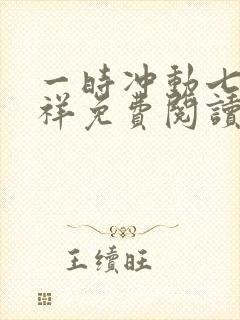 一時冲動七
祥免費閱讀
王續旺